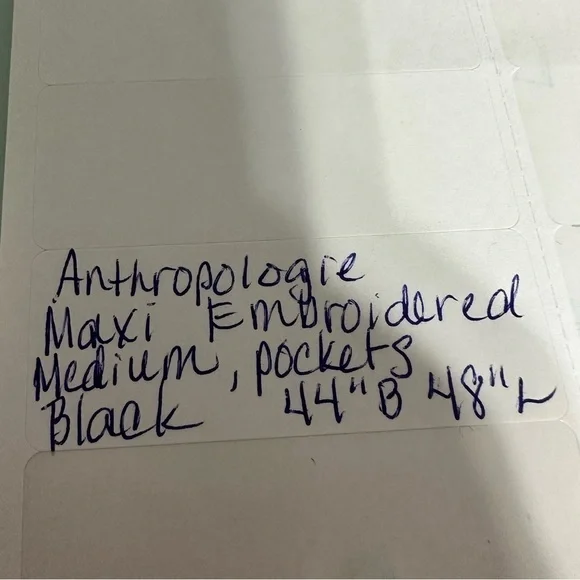 Anthropologie
Maxi Embroidered
Medium, pockets
Black 44"B 48"L